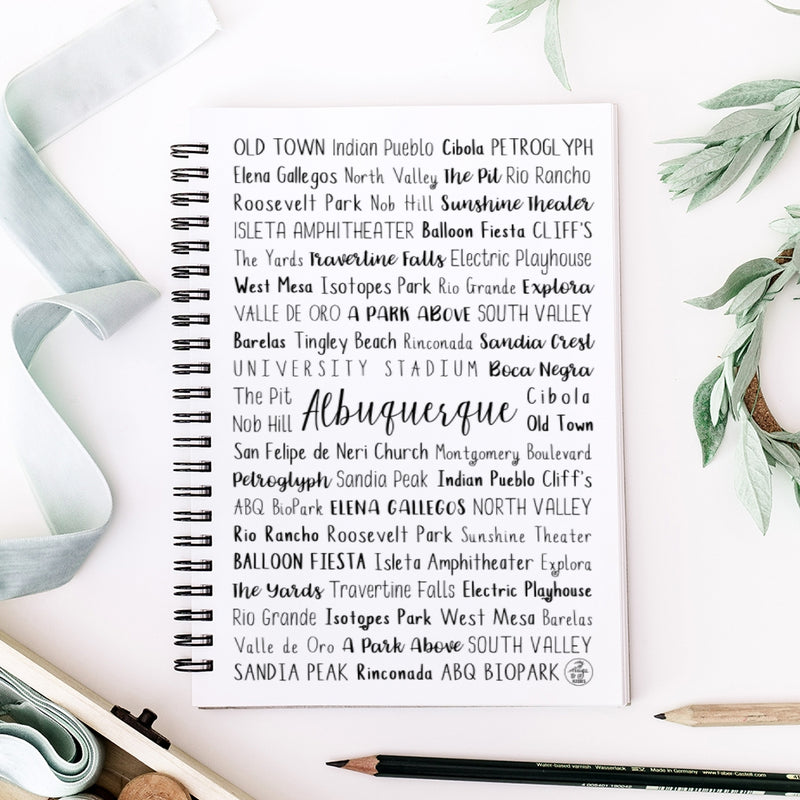 OLD TOWN Indian Pueblo Cibola PETROGLYPH
Elena Gallegos North Valley The Pit Rio Rancho
Roosevelt Park Nob Hill Sunshine Theater
ISLETA AMPHITHEATER Balloon Fiesta CLIFF'S
The Yards Traverline Falls Electric Playhouse
West Mesa Isotopes Park Rio Grande Explora
VALLE DE ORO A PARK ABOVE SOUTH VALLEY
Barelas Tingley Beach Rinconada Sandia Crest
UNIVERSITY STADIUM Boca Negra
The Pit Cibola
Albuquerque
Nob Hill Old Town
San Felipe de Neri Church Montgomery Boulevard
Petroglyph Sandia Peak Indian Pueblo Cliff's
ABQ BioPark ELENA GALLEGOS NORTH VALLEY
Rio Rancho Roosevelt Park Sunshine Theater
BALLOON FIESTA Isleta Amphitheater Explora
The Yards Travertine Falls Electric Playhouse
Rio Grande Isotopes Park West Mesa Barelas
Valle de Oro A Park Above SOUTH VALLEY
SANDIA PEAK Rinconada ABQ BIOPARK
Water-based varnish Wasserlack Made in Germany www.Faber-Castell.com